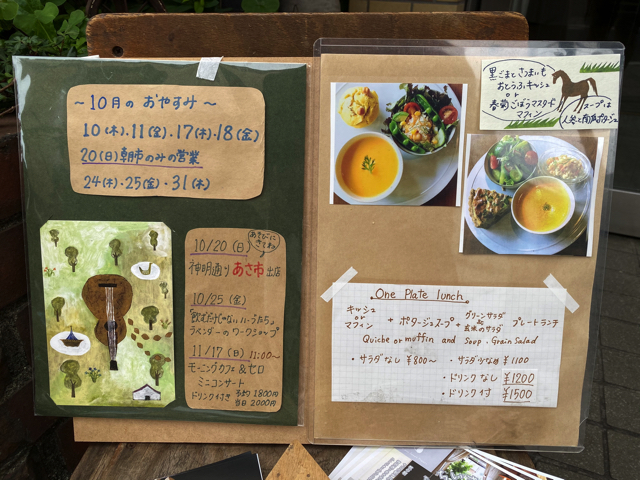 ～10月の おやすみ～
10(木)・11(金)・17(木)・18(金)
20(日)朝市のみの営業
24(木)・25(金)・31(木)
あさびに
きてね
10/20(日)
神明通り あさ市 出店
10/25(金)
ラベンダーのワークショップ
11/17(日) 11:00～
モーニングカフェ&ゼロ
ミニコンサート
ドリンク付き 予約 1800円
当日 2000円
黒ごまとさつまいも
おとうふキッシュ
or
春菊ごぼうマスタード
マフィン
スープは
人参と白花豆ポタージュ
One Plate lunch
キッシュ
or
マフィン
+ ポタージュスープ +
グリーンサラダ
&
玄米のサラダ
プレートランチ
Quiche or muffin and Soup・Grain Salad
・サラダなし ¥800～
・サラダつめ ¥1100
・ドリンクなし ¥1200
・ドリンク付 ¥1500